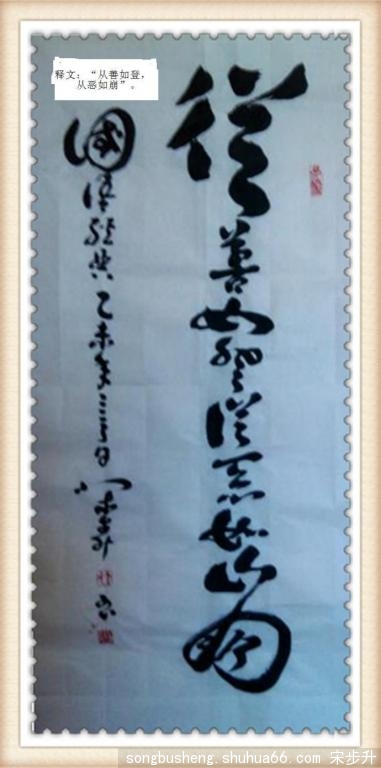 释文：“从善如登，
从恶如崩”。
從善如登從惡如崩
國 经典乙未年三月 步升
songbusheng.shuhua66.com 宋步升